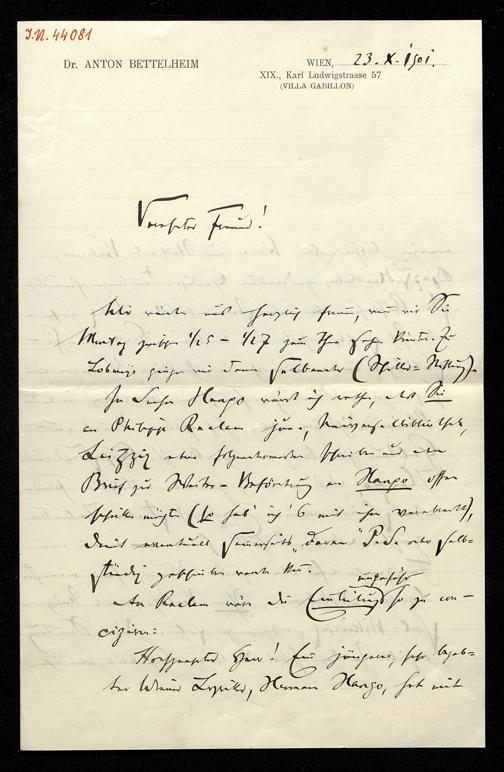 J.N. 44081
Dr. ANTON BETTELHEIM
WIEN, 23. X. 1901.
XIX., Karl Ludwigstrasse 57
(VILLA GABILLON)
Verehrter Freund!
Wir würden uns herzlich freuen, wenn wir Sie
Montag zwischen 1/2 5 – 1/2 7 zum Thee
Ludwig
In Sachen Hango würde ich rathen, daß Sie
an Philipp Reclam jun., Universalbibliothek,
Leipzig einen Schreiben und einen
Brief zur Weiter-Beförderung an Hango offen
schicken möchten (so hab' ich's mit ihm verabredet),
damit eventuell seinerseits P.S. oder selb-
ständig geschrieben werden kann.
ungefähr
An Reclam wäre die Einleitung so zu con-
cipiren:
Hochgeehrter Herr! Ein jüngerer, sehr begab-
ter Wiener Lyriker, Herman Hango, hat mit